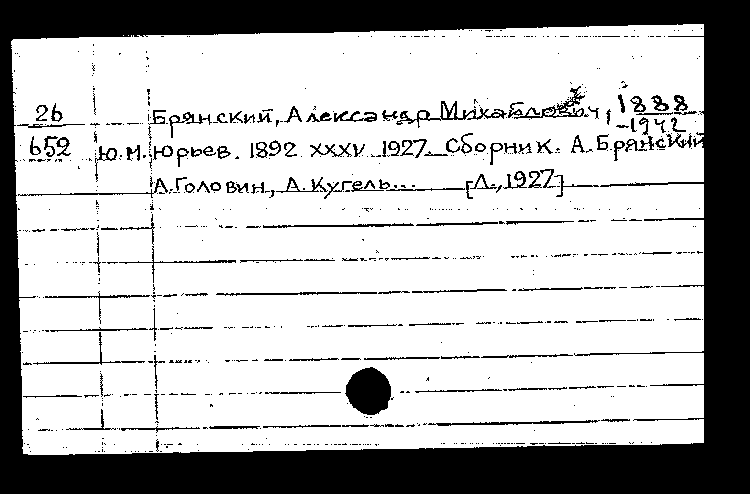 26 Брянский, Александр Михайлович, 1888
-1942
652 Ю.М. Юрьев. 1892 XXXV 1927. Сборник. А.Брянский
А.Головин, А.Кугель... [Л., 1927]